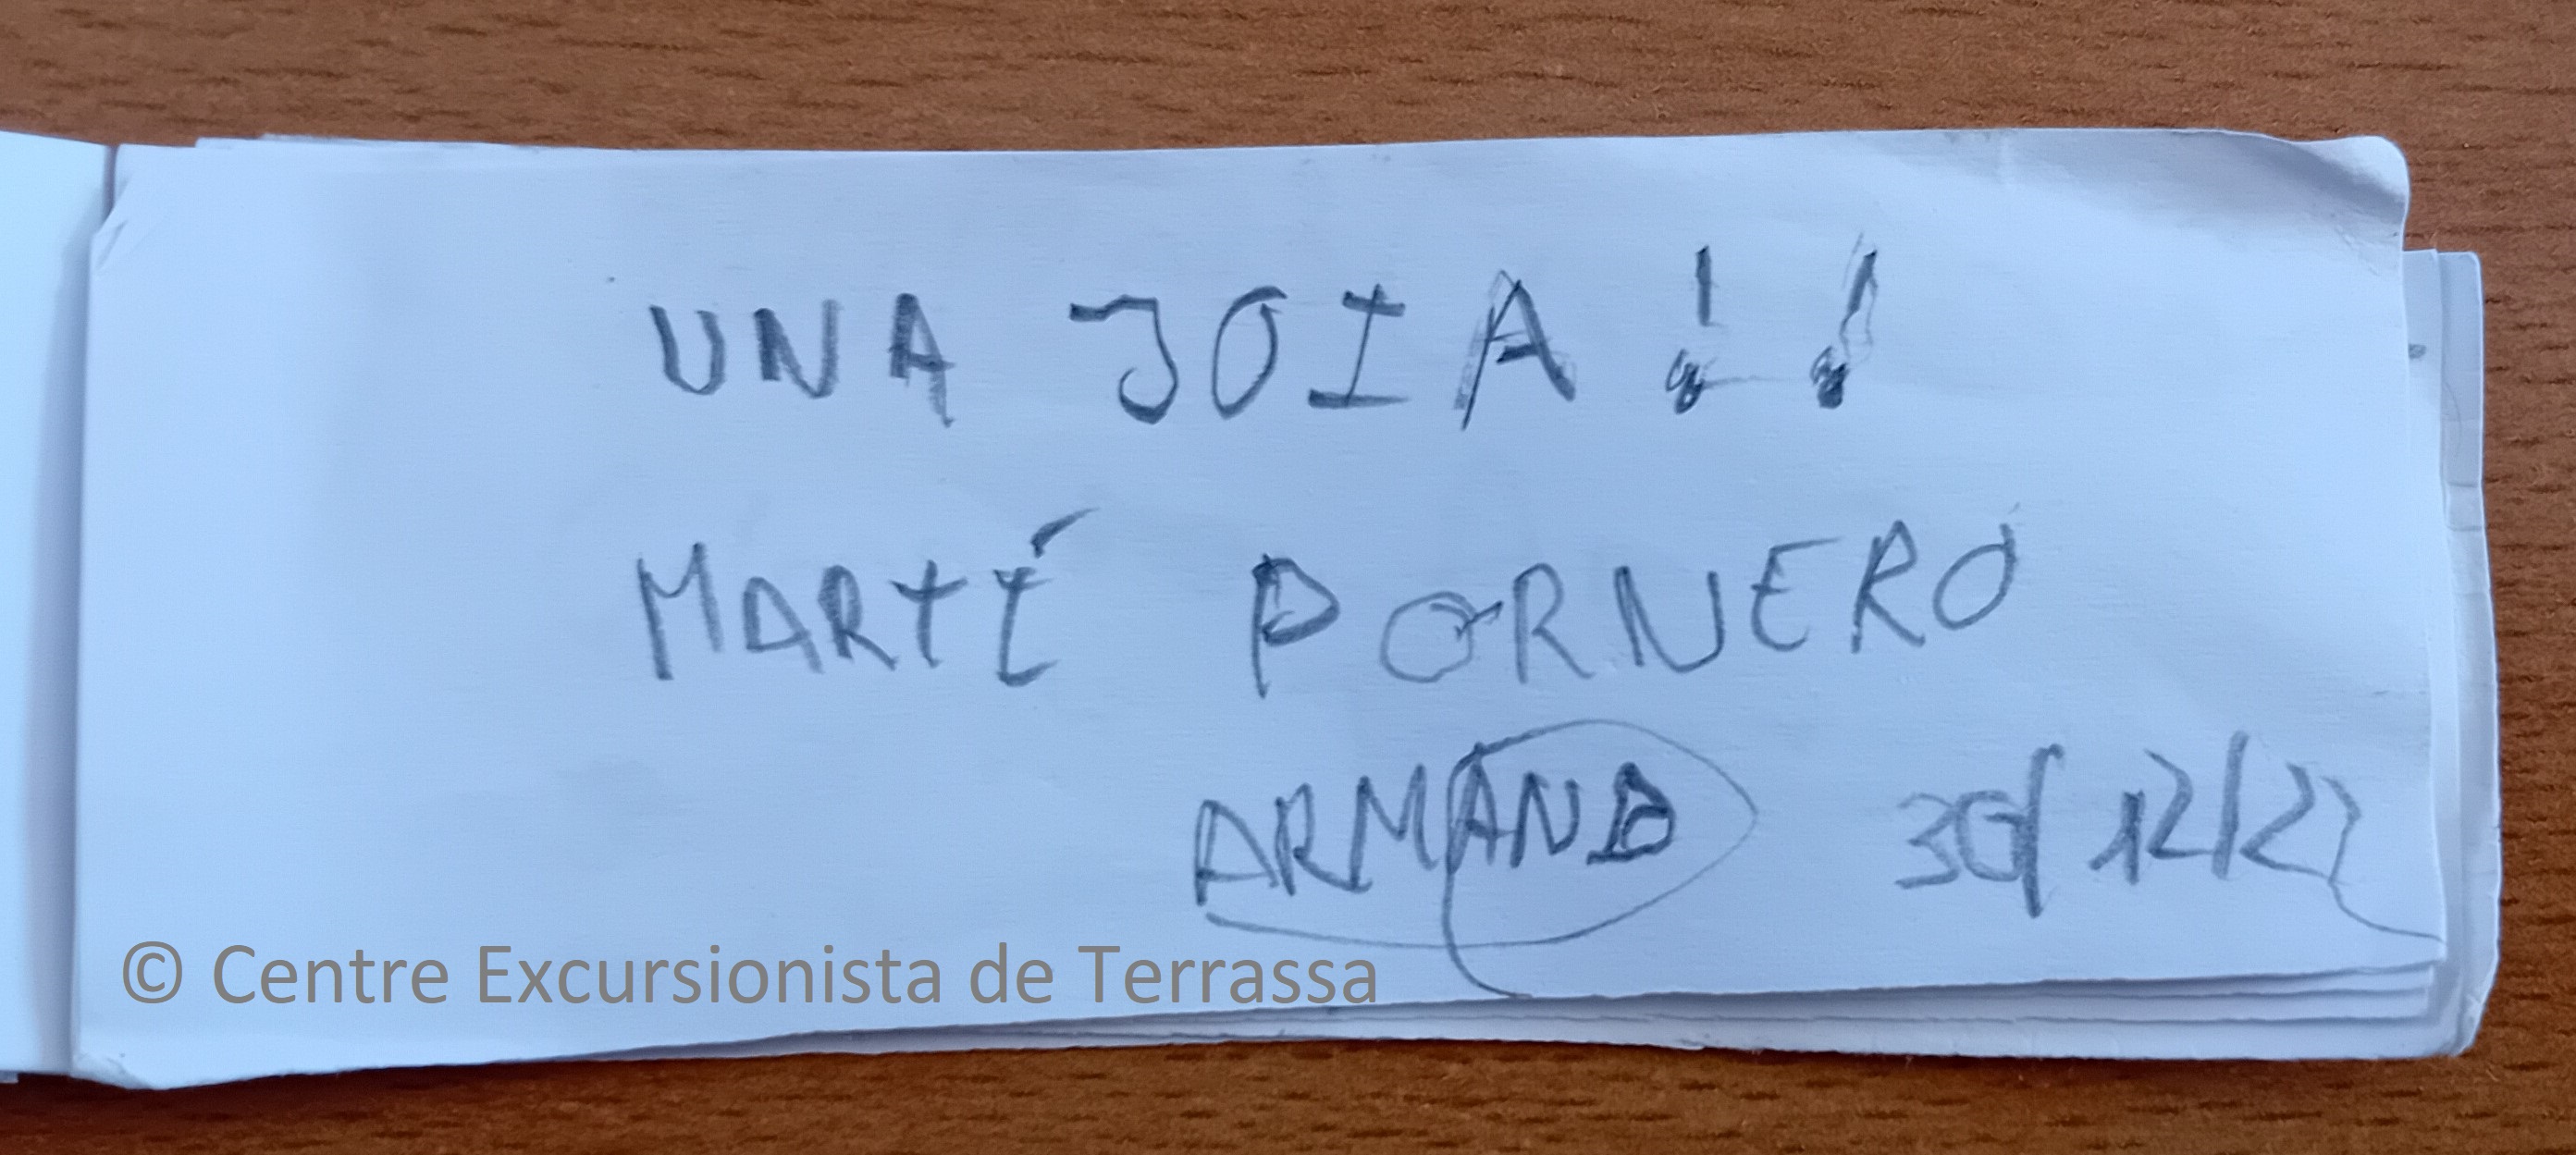 UNA JOIA!!
MARTÍ PORNERO
ARMAND 30/12/22
© Centre Excursionista de Terrassa